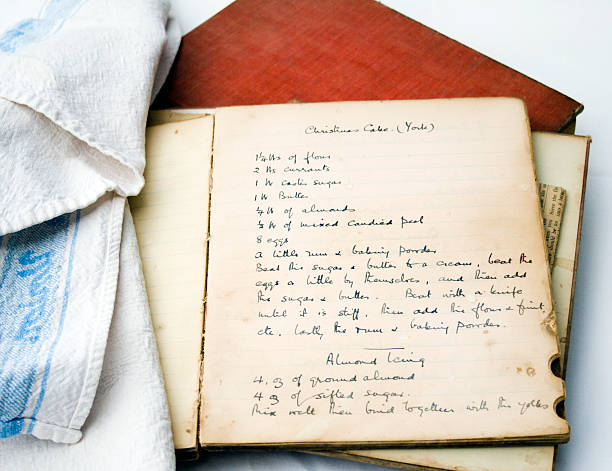 Christmas Cake. (York)
1¼ lbs of flour
2 lbs currants
1 lb castor sugar.
1 lb Butter
¼ lb of almonds
½ lb of mixed Candied peel
8 eggs
a little rum & baking powder
Beat the sugar & butter to a cream, beat the
eggs a little by themselves, and then add
the sugar & butter. Beat with a knife
until it is stiff, then add the flour & fruit,
etc. Lastly the rum & baking powder.
Almond Icing
4 oz of ground almond
4 oz of sifted sugar.
Mix well then bind together with the yolks